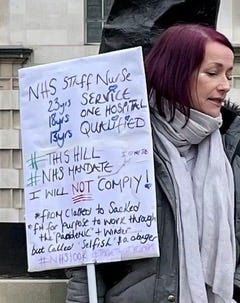 NHS STAFF NURSE
23yrs SERVICE
18yrs ONE HOSPITAL
13yrs QUALIFIED
# THIS HILL
# NHS MANDATE
I WILL NOT COMPLY!
*FROM Clapped to Sacked
*fit for Purpose to work through
the "pandemic" + Winter
but called 'Selfish' & a danger
#NHS100K